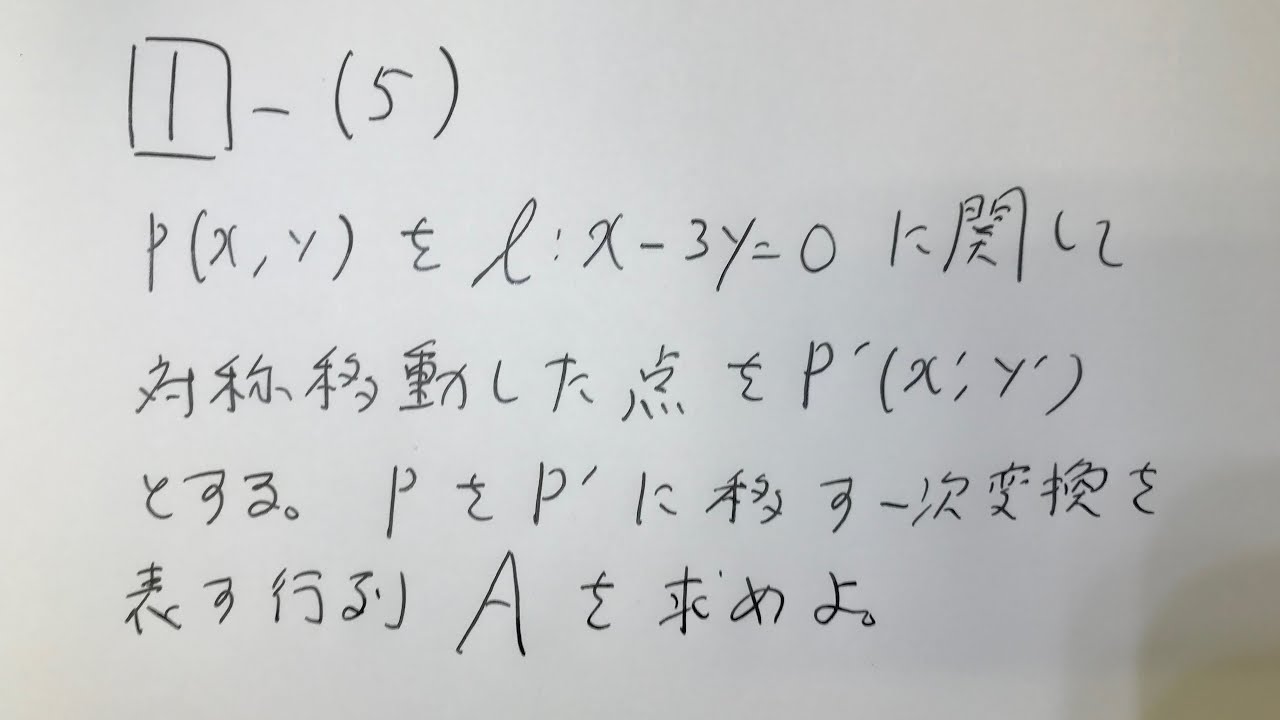 1-(5)
P(x,y)をℓ:x-3y=0に関して
対称移動した点をP'(x',y')
とする。PをP'に移す一次変換を
表す行列Aを求めよ。